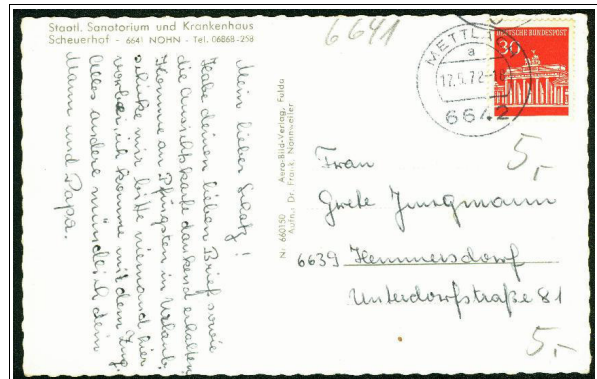 Staatl. Sanatorium und Krankenhaus
Scheuerhof - 6641 NOHN - Tel. 06868-258
6641
METTLACH
a
17.5.72-18
6642
DEUTSCHE BUNDESPOST
30
Mein lieber Schatz!
Habe deinen lieben Brief sowie
die Ansichtskarte dankend erhalten.
Komme an Pfingsten in Urlaub,
schicke mir bitte niemand hier
vorbei, ich komme mit dem Zug.
Alles andere mündlich dein
Mann und Papa.
Nr. 660150 Aero-Bild-Verlag, Fulda
Aufn.: Dr. Frank, Nonnweiler
5,-
Frau
Grete Jungmann
6639 Hemmersdorf
Unterdorfstraße 81
5,-